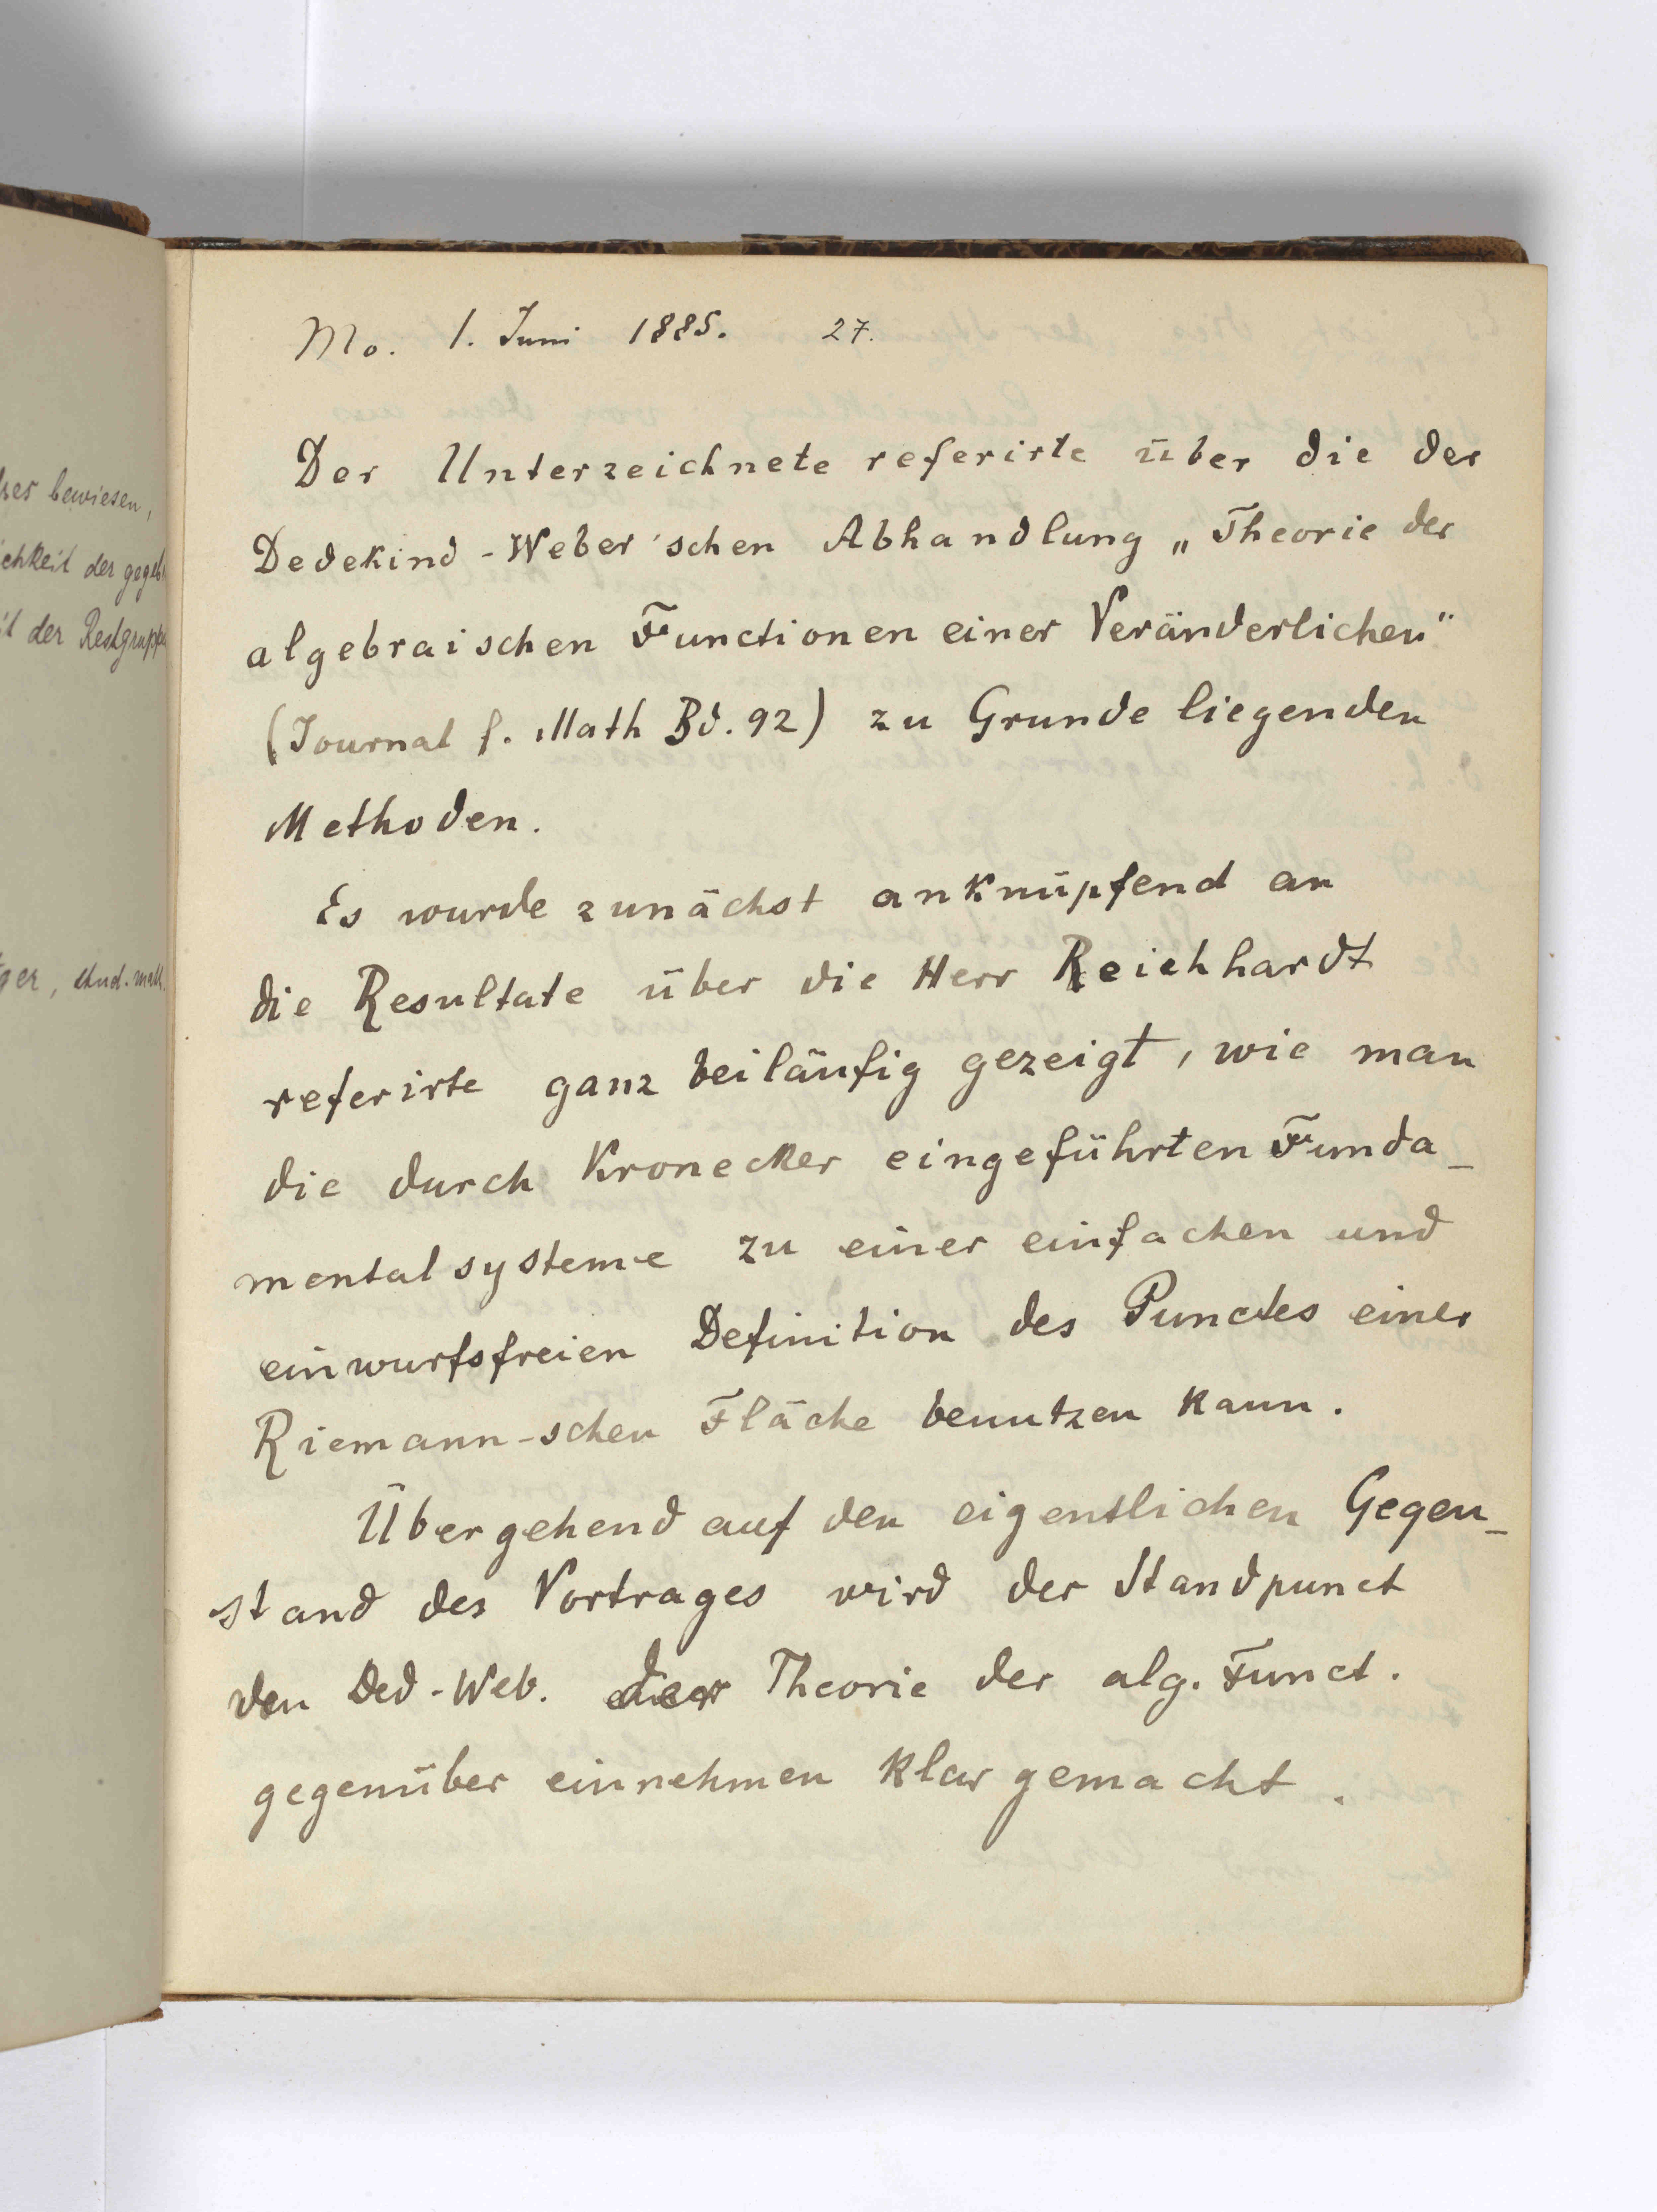 ses bewiesen,
ichkeit der gegeb
it der Restgruppe
ger, stud. math.
Mo. 1. Juni 1885. 27.
Der Unterzeichnete referirte über die der
Dedekind-Weber'schen Abhandlung „Theorie der
algebraischen Functionen einer Veränderlichen"
(Journal f. Math Bd. 92) zu Grunde liegenden
Methoden.
Es wurde zunächst anknüpfend an
die Resultate über die Herr Reichhardt
referirte ganz beiläufig gezeigt, wie man
die durch Kronecker eingeführten Funda-
mentalsysteme zu einer einfachen und
einwurfsfreien Definition des Punctes einer
Riemann-schen Fläche benutzen kann.
Übergehend auf den eigentlichen Gegen-
stand des Vortrages wird der Standpunct
den Ded-Web. der Theorie der alg. Funct.
gegenüber einnehmen klar gemacht.